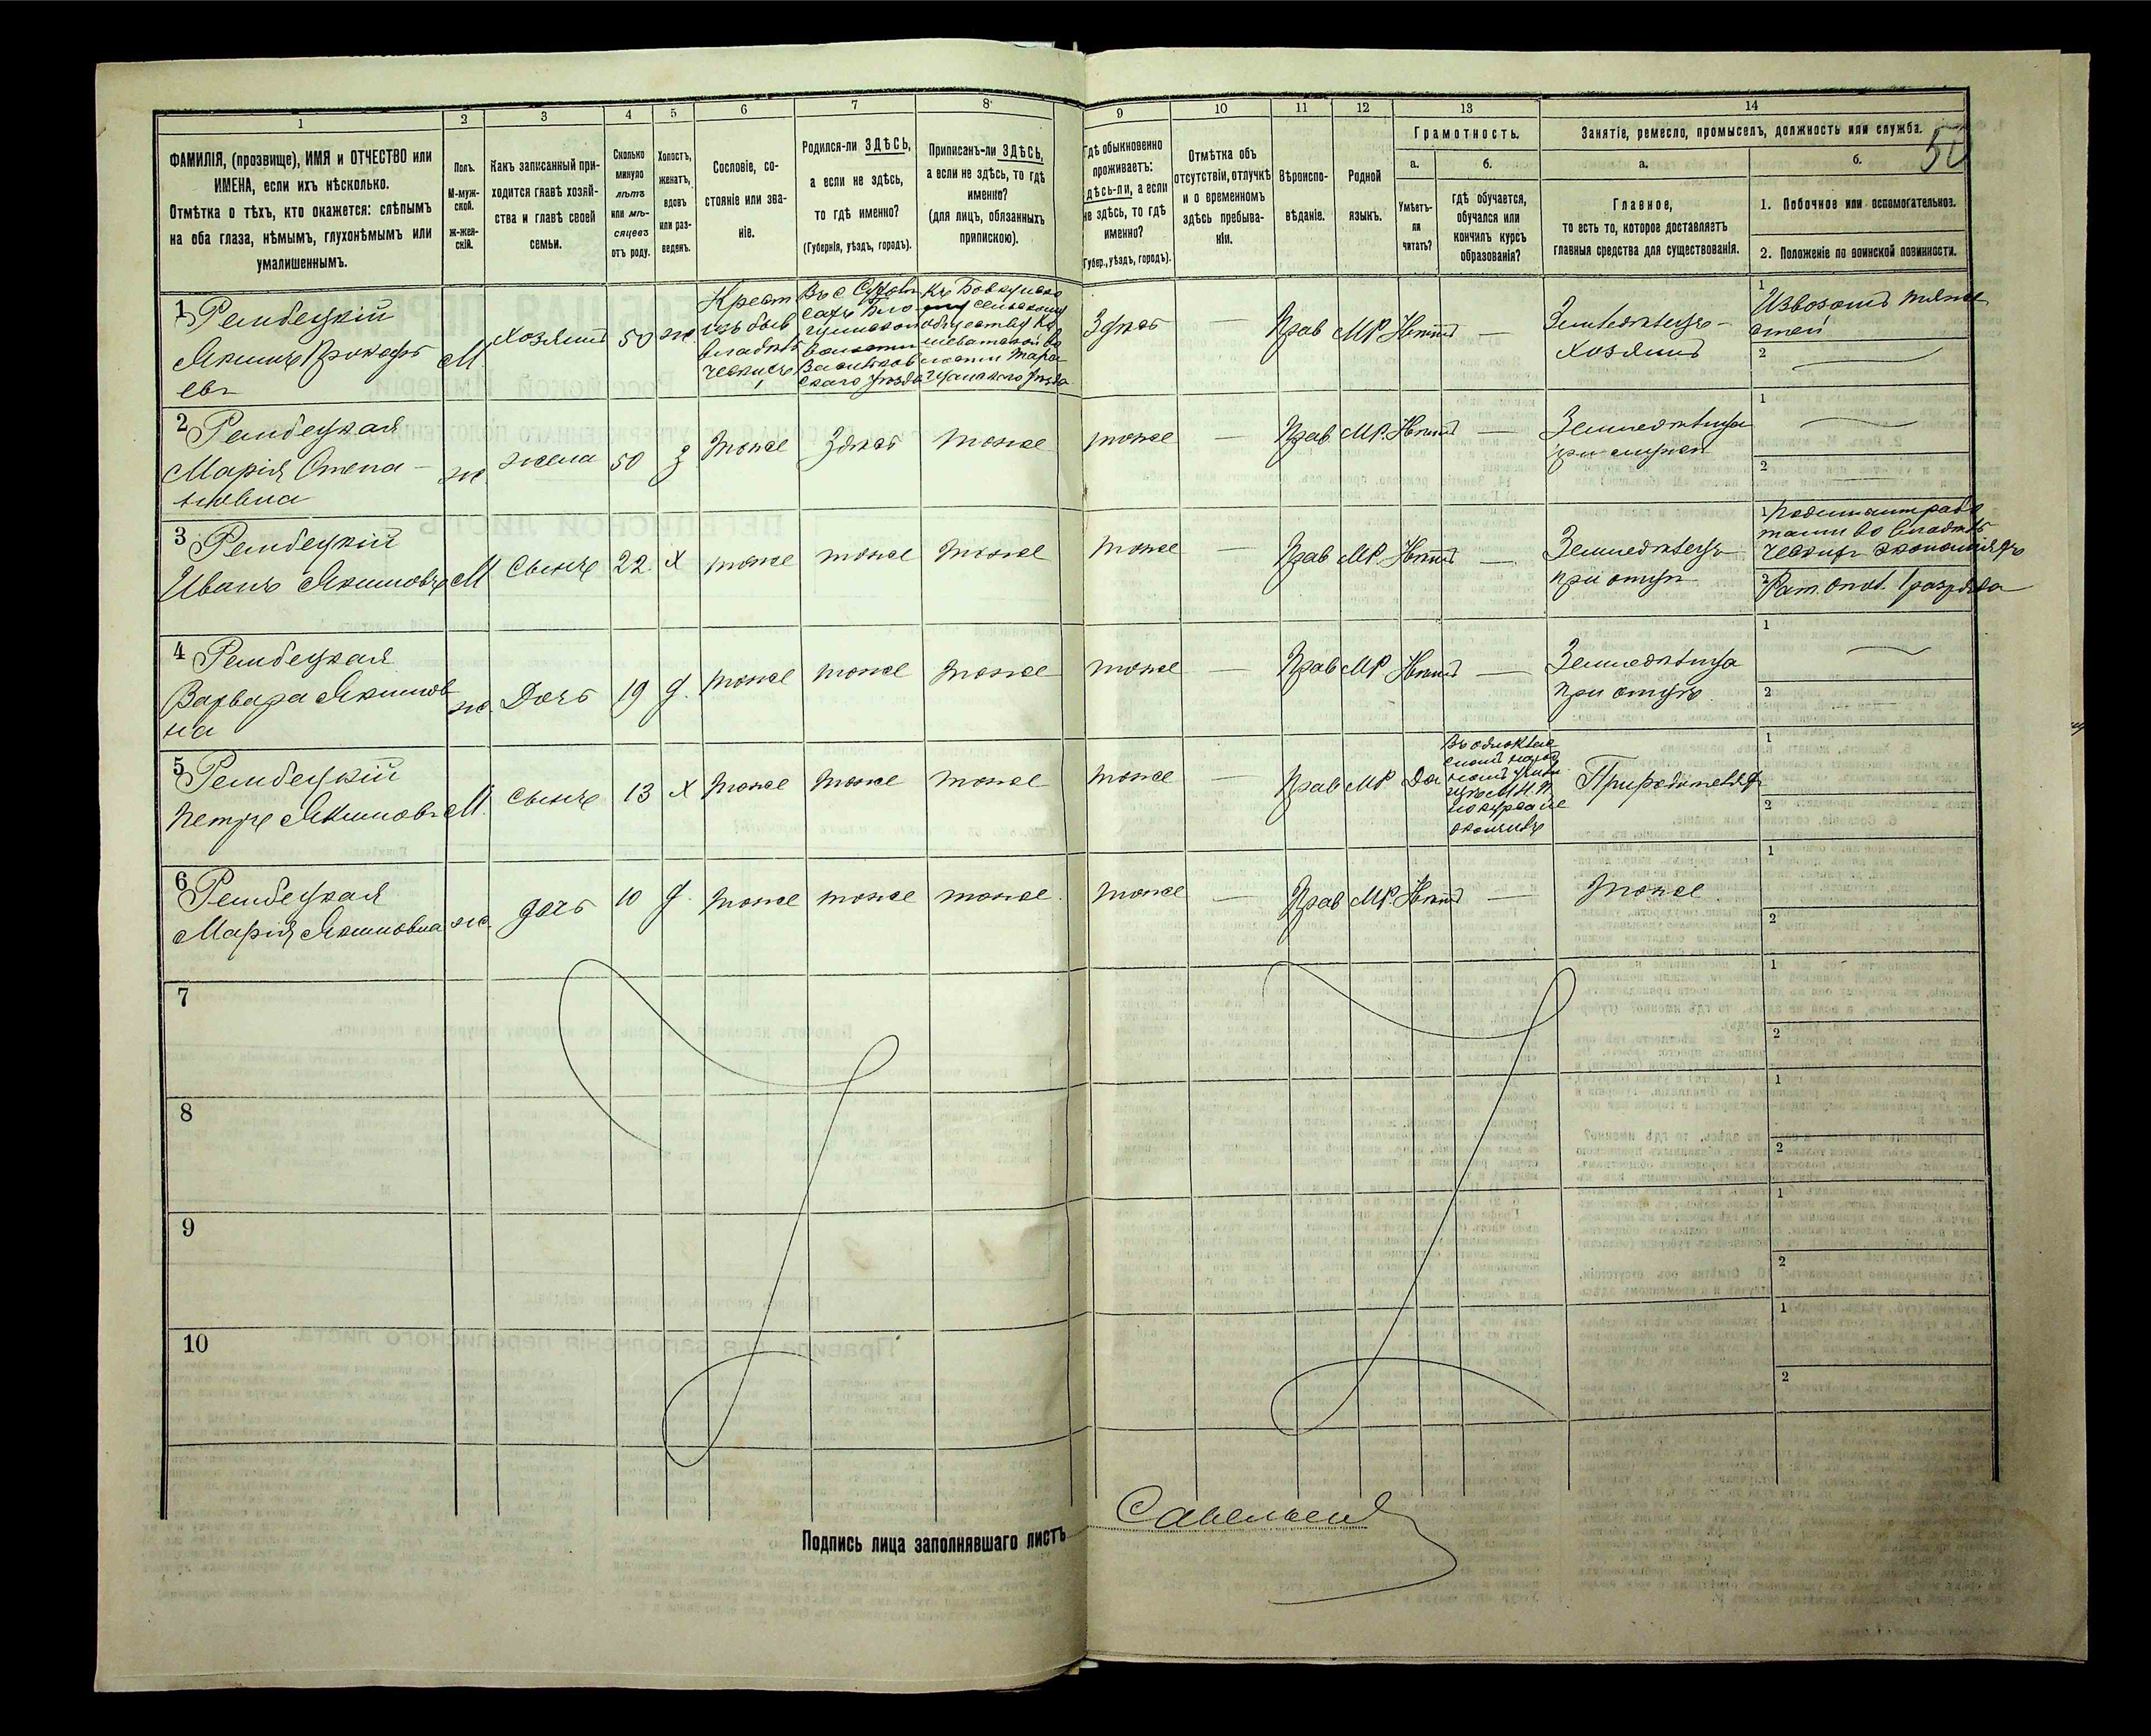 1
2
3
4
5
6
7
8
9
10
11
12
13
14
50
ФАМИЛІЯ, (прозвище), ИМЯ и ОТЧЕСТВО или
ИМЕНА, если ихъ нѣсколько.
Отмѣтка о тѣхъ, кто окажется: слѣпымъ
на оба глаза, нѣмымъ, глухонѣмымъ или
умалишеннымъ.
Полъ.
М-муж-
ской.
Ж-жен-
скій.
Какъ записанный при-
ходится главѣ хозяй-
ства и главѣ своей
семьи.
Сколько
минуло
лѣтъ
или мѣ-
сяцевъ
отъ роду.
Холостъ,
женатъ,
вдовъ
или раз-
веденъ.
Сословіе, со-
стояніе или зва-
ніе.
Родился-ли ЗДѢСЬ,
а если не здѣсь,
то гдѣ именно?
(Губернія, уѣздъ, городъ).
Приписанъ-ли ЗДѢСЬ,
а если не здѣсь, то гдѣ
именно?
(для лицъ, обязанныхъ
припискою).
Гдѣ обыкновенно
проживаетъ:
здѣсь-ли, а если
не здѣсь, то гдѣ
именно?
(Губер., уѣздъ, городъ).
Отмѣтка объ
отсутствіи, отлучкѣ
и о временномъ
здѣсь пребыва-
ніи.
Вѣроиспо-
вѣданіе.
Родной
языкъ.
Грамотность.
а.
Умѣетъ-
ли
читать?
б.
гдѣ обучается,
обучался или
кончилъ курсъ
образованія?
Занятіе, ремесло, промыселъ, должность или служба.
а.
Главное,
то есть то, которое доставляетъ
главныя средства для существованія.
б.
1. Побочное или вспомогательное.
2. Положеніе по воинской повинности.
1
Рембецкій
Якимъ Прокофь
евъ
М
Хозяинъ
50
ж.
Крест
изъ быв
владѣль
ческихъ
Здѣсь
—
Прав
МР.
Нѣтъ
—
Землѣдѣлецъ -
хозяинъ
1
2
2
Рембецкая
Марія Степа -
новна
ж
жена
50
З
тоже
Здѣсь
тоже
тоже
—
Прав
МР.
Нѣтъ
—
1
2
3
Рембецкій
Иванъ Якимовъ
М
Сынъ
22
Х
тоже
тоже
тоже
тоже
—
Прав
МР.
Нѣтъ
—
Земледѣлецъ
при отцѣ
1
2
Рат. опол. 1 разряда
4
Рембецкая
Варвара Якимов
на
ж.
Дочь
19
д.
тоже
тоже
тоже
тоже
—
Прав
МР
Нѣтъ
—
при отцѣ.
1
2
5
Рембецкій
Петръ Якимовъ
М.
Сынъ
13
Х
тоже
тоже
тоже
тоже
—
Прав
МР
Да
При родителяхъ
1
2
6
Рембецкая
Марія Якимовна
ж.
дочь
10
д.
тоже
тоже
тоже.
тоже
—
Прав
МР.
Нѣтъ
—
тоже.
1
2
7
1
2
8
1
2
9
1
2
10
1
2
Подпись лица заполнявшаго листъ